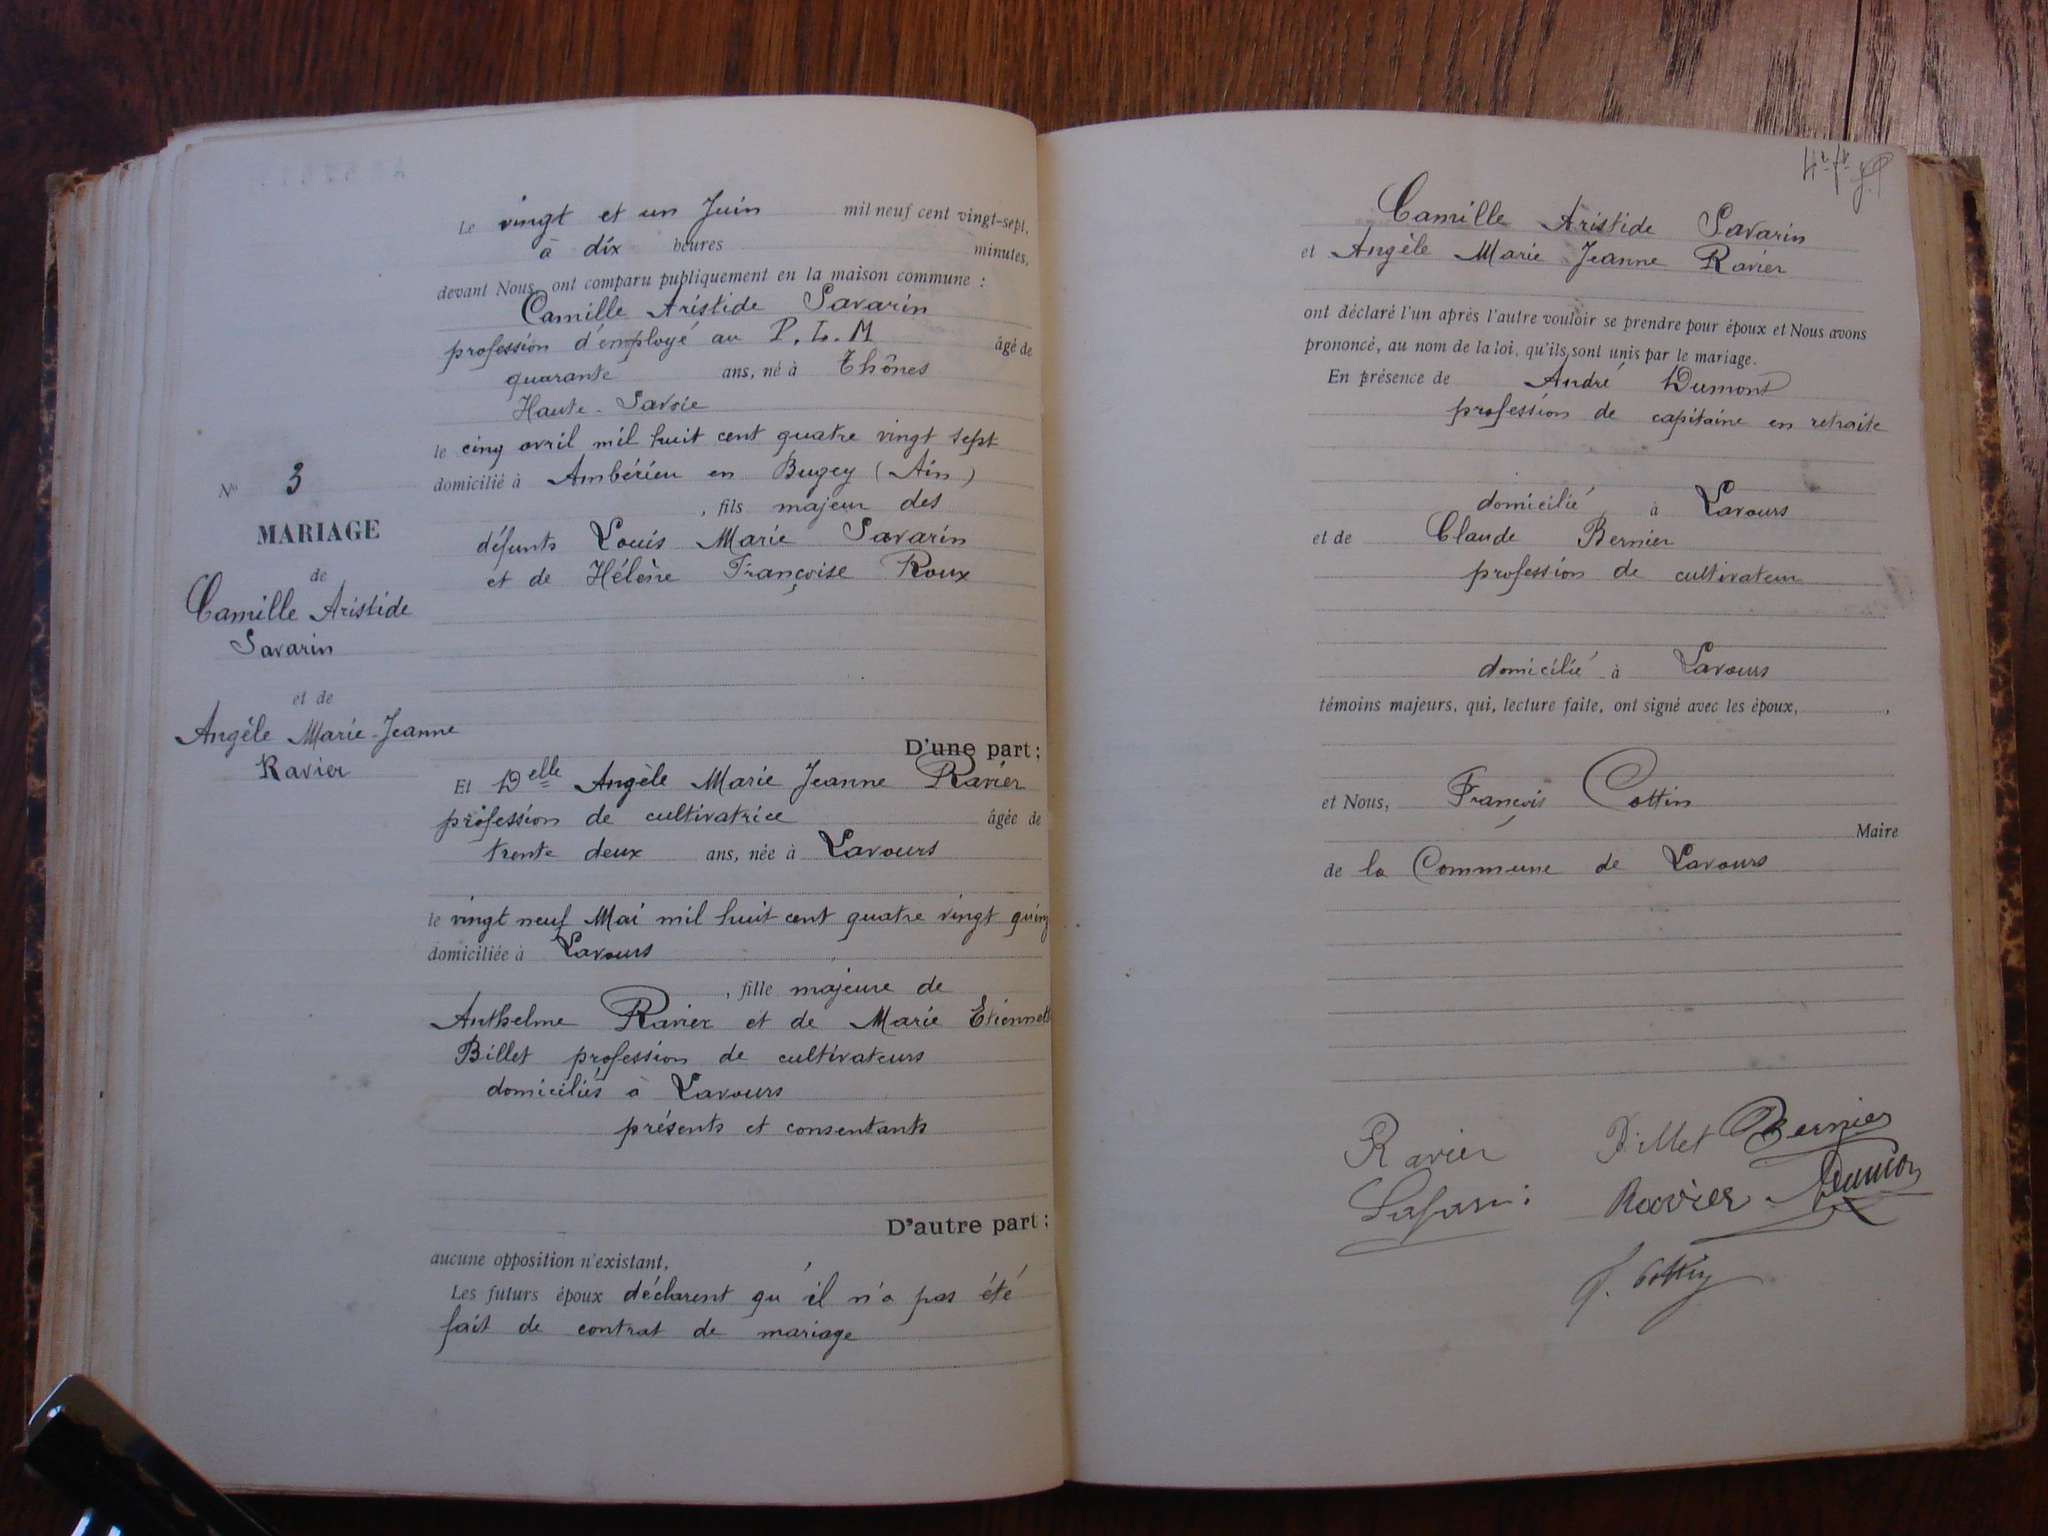 N° 3
MARIAGE
de
Camille Aristide
Savarin
et de
Angèle Marie-Jeanne
Ravier
Le vingt et un Juin mil neuf cent vingt-sept,
à dix heures minutes,
devant Nous, ont comparu publiquement en la maison commune :
Camille Aristide Savarin
profession d'employé au P.L.M âgé de
quarante ans, né à Thônes
Haute-Savoie
le cinq avril mil huit cent quatre vingt sept
domicilié à Ambérieu en Bugey (Ain)
, fils majeur des
défunts Louis Marie Savarin
et de Hélène Françoise Roux
D'une part ;
Et Delle Angèle Marie Jeanne Ravier
profession de cultivatrice âgée de
trente deux ans, née à Lavours
le vingt neuf Mai mil huit cent quatre vingt quinz
domiciliée à Lavours
, fille majeure de
Anthelme Ravier et de Marie Etiennett
Billet profession de cultivateurs
domiciliés à Lavours
présents et consentants
D'autre part ;
aucune opposition n'existant,
Les futurs époux déclarent qu'il n'a pas été
fait de contrat de mariage
Camille Aristide Savarin
et Angèle Marie Jeanne Ravier
ont déclaré l'un après l'autre vouloir se prendre pour époux et Nous avons
prononcé, au nom de la loi, qu'ils sont unis par le mariage.
En présence de André Dumont
profession de capitaine en retraite
domicilié à Lavours
et de Claude Bernier
profession de cultivateur
domicilié à Lavours
témoins majeurs, qui, lecture faite, ont signé avec les époux, ,
et Nous, François Cottin
Maire
de la Commune de Lavours
Ravier Billet Bernier
Savarin Ravier Dumont
F. Cottin